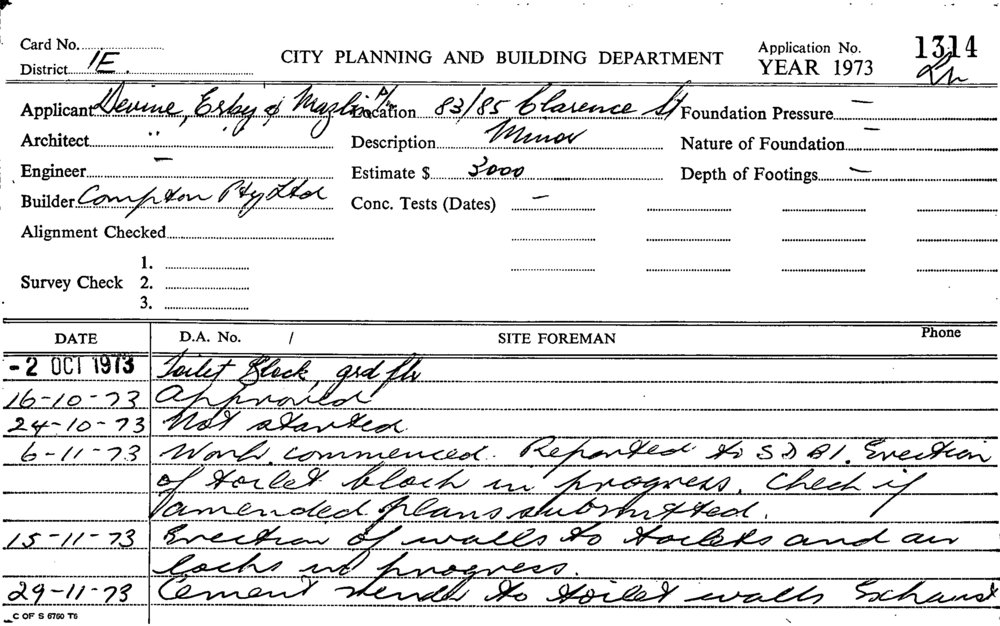 Card No.
District 1E.
CITY PLANNING AND BUILDING DEPARTMENT
Application No. 1314
YEAR 1973
Applicant Devine, Erby & Mazlin P/L Location 83/85 Clarence St Foundation Pressure —
Architect " Description Minor Nature of Foundation —
Engineer — Estimate $ 3000 Depth of Footings —
Builder Compton Pty Ltd Conc. Tests (Dates) —
Alignment Checked
Survey Check 1.
2.
3.
DATE D.A. No. / SITE FOREMAN Phone
-2 OCT 1973 Toilet Block, grd flr
16-10-73 Approved
24-10-73 Not started.
6-11-73 Work commenced. Reported to S D B I. Erection
of toilet block in progress. Check if
amended plans submitted.
15-11-73 Erection of walls to toilets and air
locks in progress.
29-11-73 Cement render to toilet walls Exhaust
C OF S 6760 T6